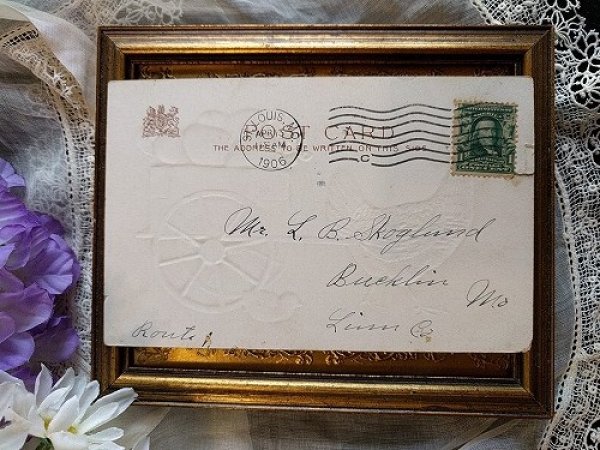 POST CARD
THE ADDRESS TO BE WRITTEN ON THIS SIDE
ST. LOUIS, MO.
APR
AM
1906
C
Mr. L. B. Skoglund
Bucklin Mo
Linn Co
Route